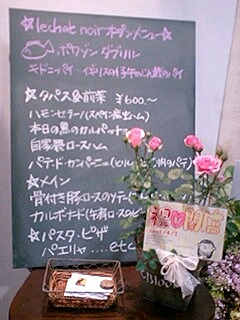 ☆ le chat noir オープンメニュー☆
ポワソン ダブリル
キドニーパイ
☆タパス&前菜 ¥600〜
ハモンセラーノ(スペイン産生ハム)
本日の魚のカルパッチョ
自家製ロースハム
パテドカンパーニュ
☆メイン
骨付き豚ロースのソテー
カルボナード
☆パスタ・ピザ
パエリャ....etc
祝♡開店